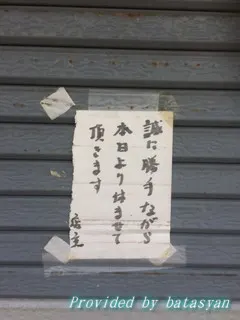 誠に勝手ながら
本日より休ませて
頂きます
店主
Provided by batasyan